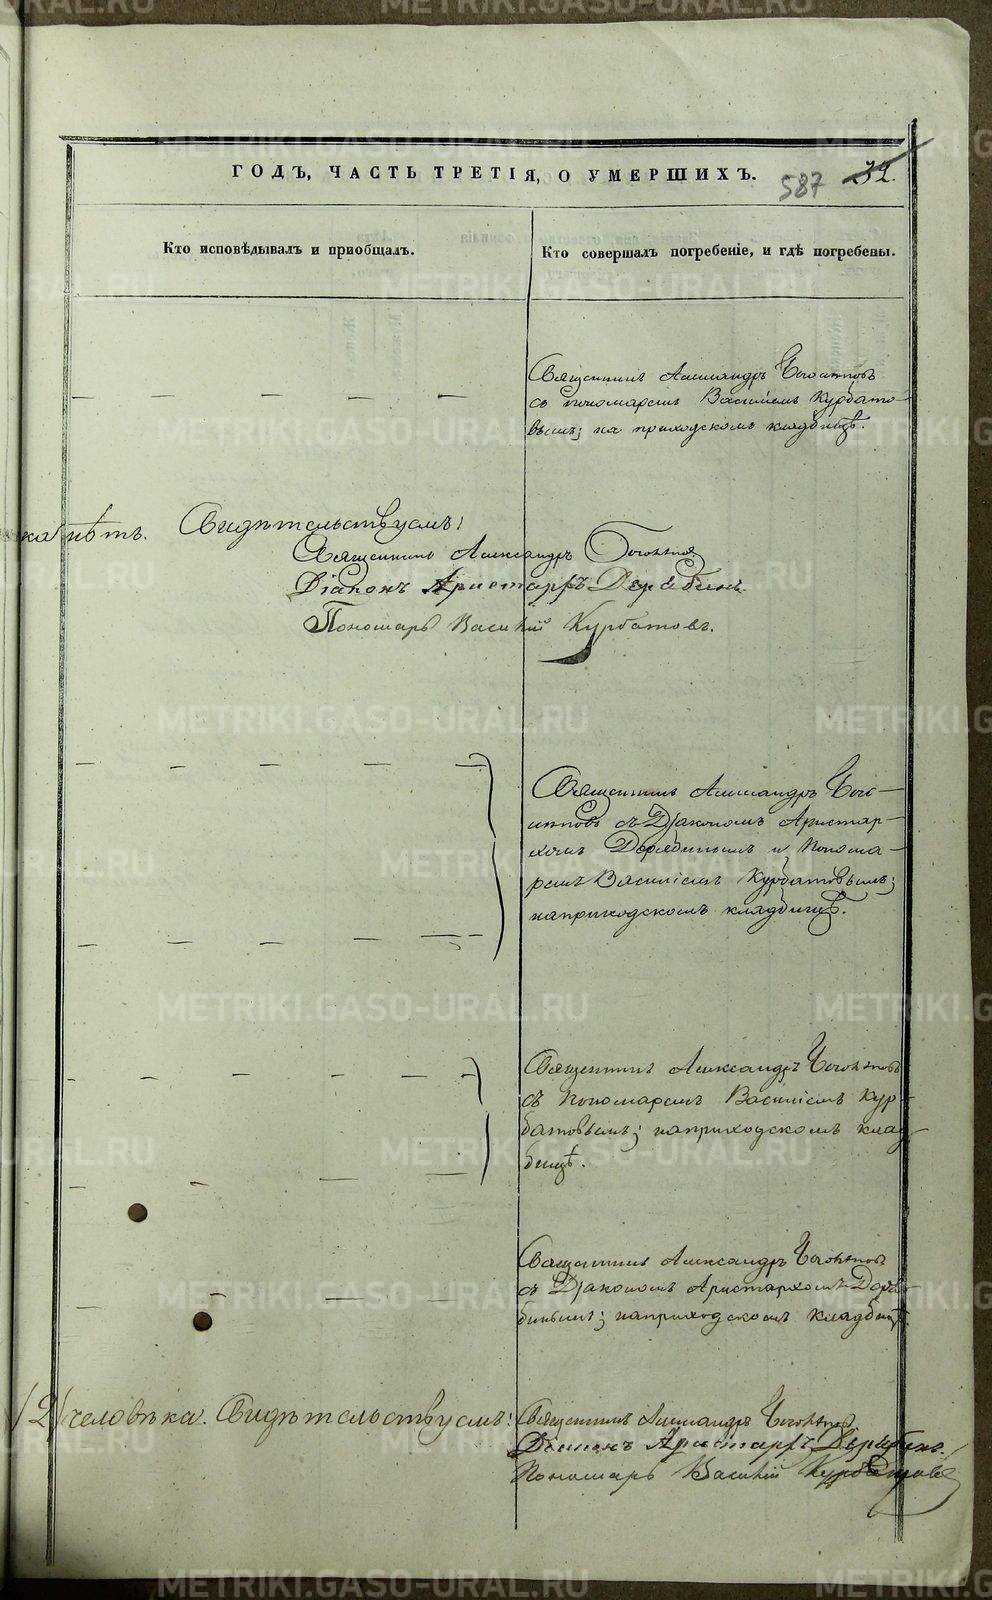 ГОДЪ, ЧАСТЬ ТРЕТІЯ, О УМЕРШИХЪ.
587 32.
Кто исповѣдывалъ и пріобщалъ.
Кто совершалъ погребеніе, и гдѣ погребены.
Священникъ Александръ
съ пономаремъ Василіемъ Курбато-
вымъ; на приходскомъ кладбищѣ.
нѣтъ. Свидѣтельствуемъ:
Священникъ Александръ
Діаконъ Аристархъ Дерябинъ.
Пономарь Василій Курбатовъ.
Священникъ Александръ
съ Діакономъ Аристар-
хомъ Дерябинымъ и Понома-
ремъ Василіемъ Курбатовымъ;
на приходскомъ кладбищѣ.
Священникъ Александръ
съ Пономаремъ Василіемъ Кур-
батовымъ; на приходскомъ клад-
бищѣ.
Священникъ Александръ
съ Діакономъ Аристархомъ Деря-
бинымъ; на приходскомъ кладбищѣ.
/2/ человѣка. Свидѣтельствуемъ:
Священникъ Александръ
Діаконъ Аристархъ Дерябинъ.
Пономарь Василій Курбатовъ
METRIKI.GASO-URAL.RU